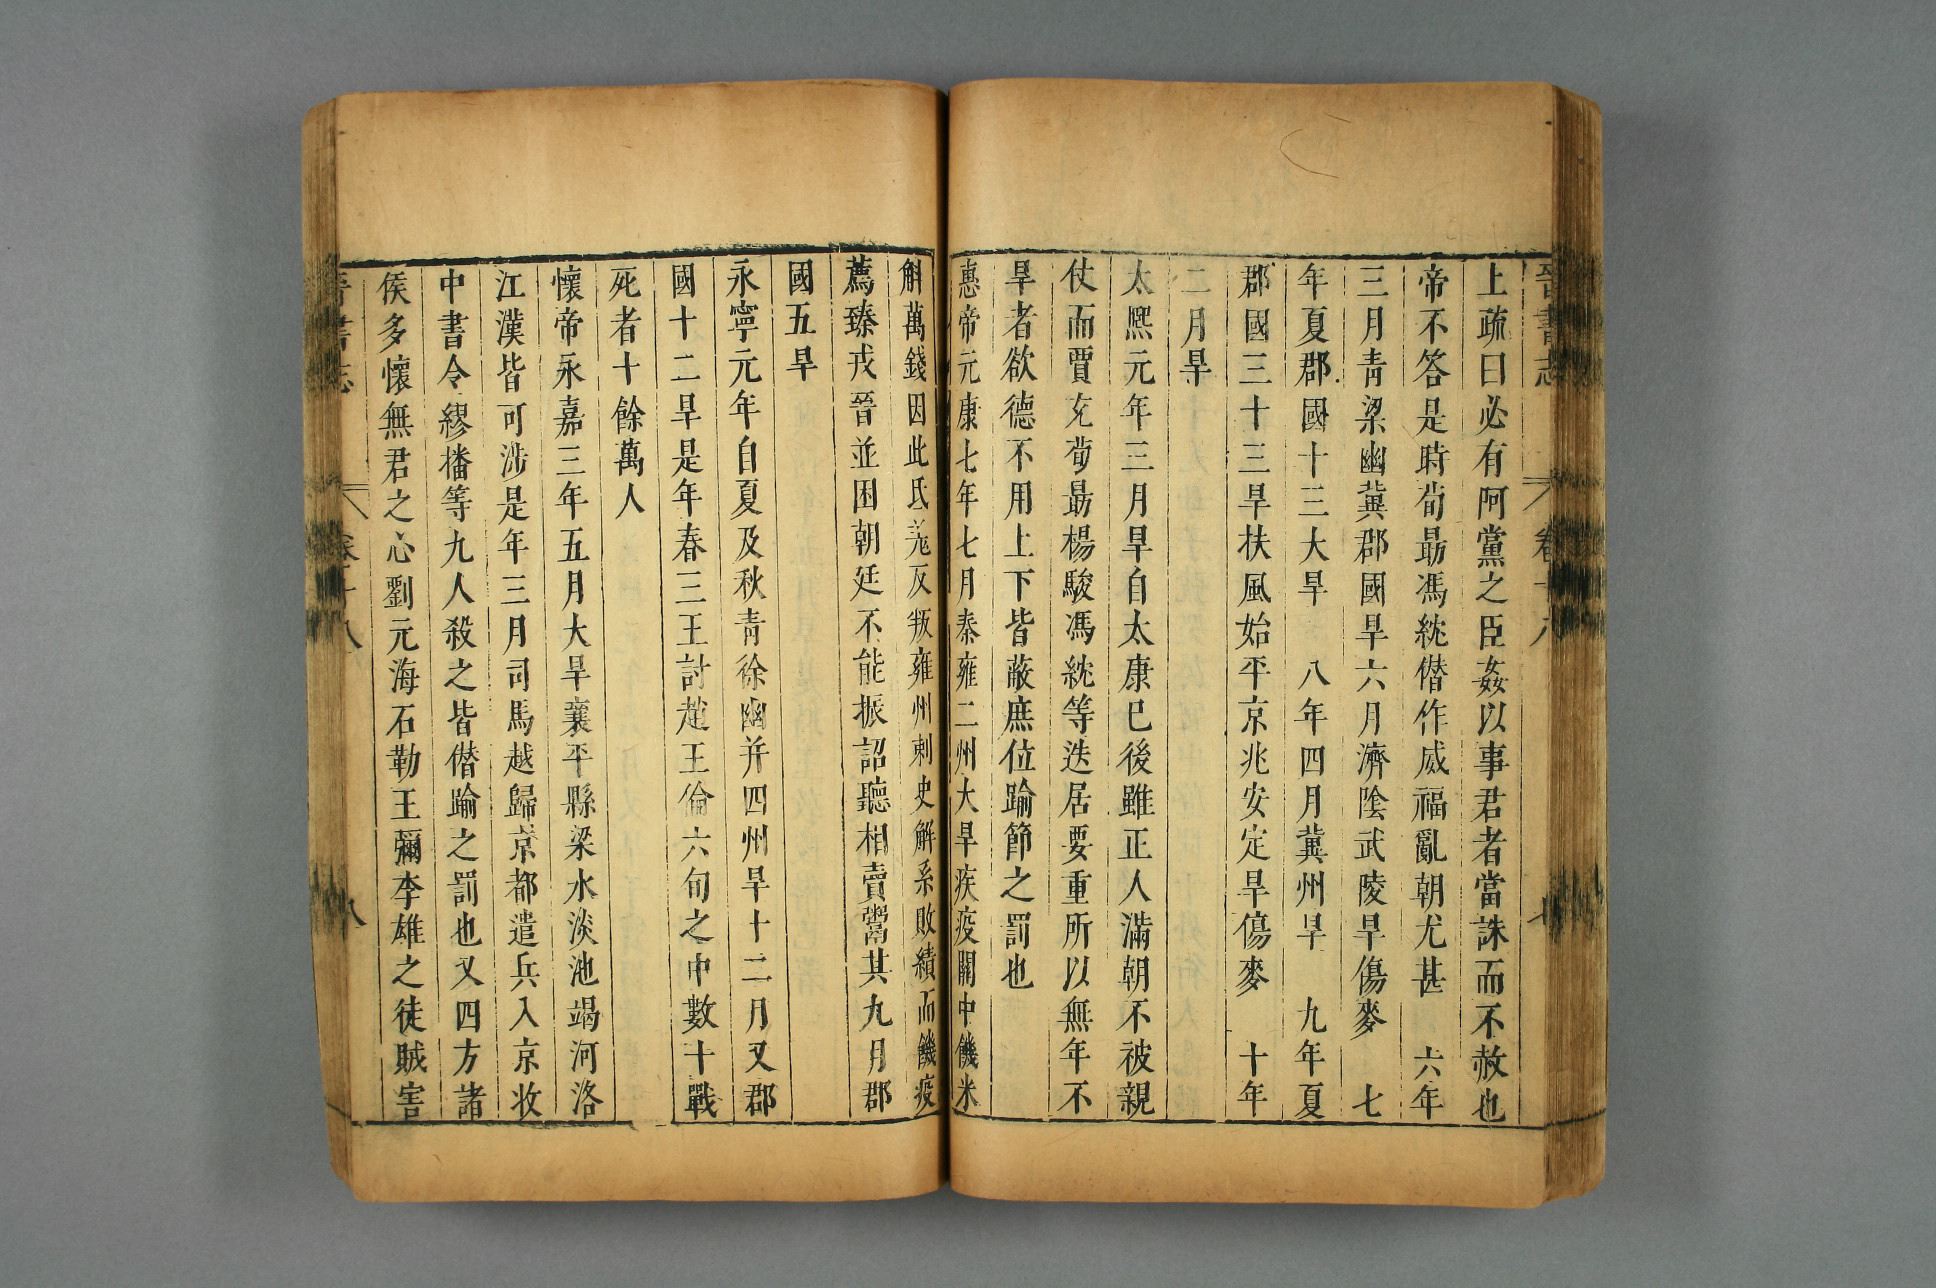 晉書志 卷十八 七
上疏曰必有阿黨之臣姦以事君者當誅而不赦也
帝不答是時荀勗馮紞僭作威福亂朝尤甚 六年
三月青梁幽冀郡國旱六月濟陰武陵旱傷麥 七
年夏郡國十三大旱 八年四月冀州旱 九年夏
郡國三十三旱扶風始平京兆安定旱傷麥 十年
二月旱
太熈元年三月旱自太康已後雖正人滿朝不被親
仗而賈充荀勗楊駿馮紞等迭居要重所以無年不
旱者欲德不用上下皆蔽庶位踰節之罰也
惠帝元康七年七月秦雍二州大旱疾疫關中饑米
斛萬錢因此氐羌反叛雍州刺史解系敗績而饑疫
薦臻戎晉並困朝廷不能振詔聽相賣鬻其九月郡
國五旱
永寧元年自夏及秋青徐幽并四州旱十二月又郡
國十二旱是年春三王討趙王倫六旬之中數十戰
死者十餘萬人
懷帝永嘉三年五月大旱襄平縣梁水淡池竭河洛
江漢皆可涉是年三月司馬越歸京都遣兵入京收
中書令繆播等九人殺之皆僭踰之罰也又四方諸
侯多懷無君之心劉元海石勒王彌李雄之徒賊害
晉書志 卷十八 八